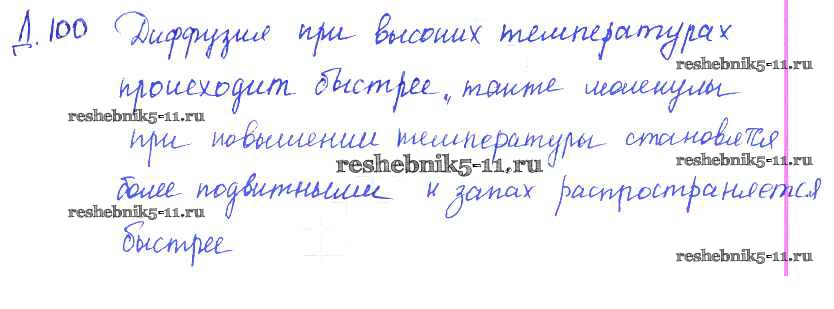 Д. 100 Диффузия при высоких температурах
reshebnik5-11.ru
происходит быстрее, также молекулы
reshebnik5-11.ru
при повышении температуры становятся
reshebnik5-11.ru
reshebnik5-11.ru
более подвижными и запах распространяется
reshebnik5-11.ru
быстрее
reshebnik5-11.ru